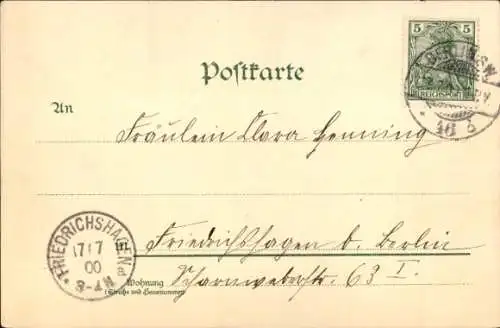 5 5
REICHSPOST
BERLIN S.W.
46 d
Postkarte
An
Fräulein Clara Henning
FRIEDRICHSHAGEN
17 7
00
7-8 N
in
Friedrichshagen b. Berlin
Wohnung
(Straße und Hausnummer)
Scharnweberstr. 63 I.